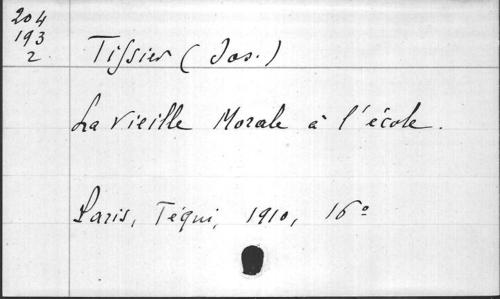 204
193
2.
Tissier (Jos.)
La Vieille Morale à l'école.
Paris, Téqui, 1910, 16º